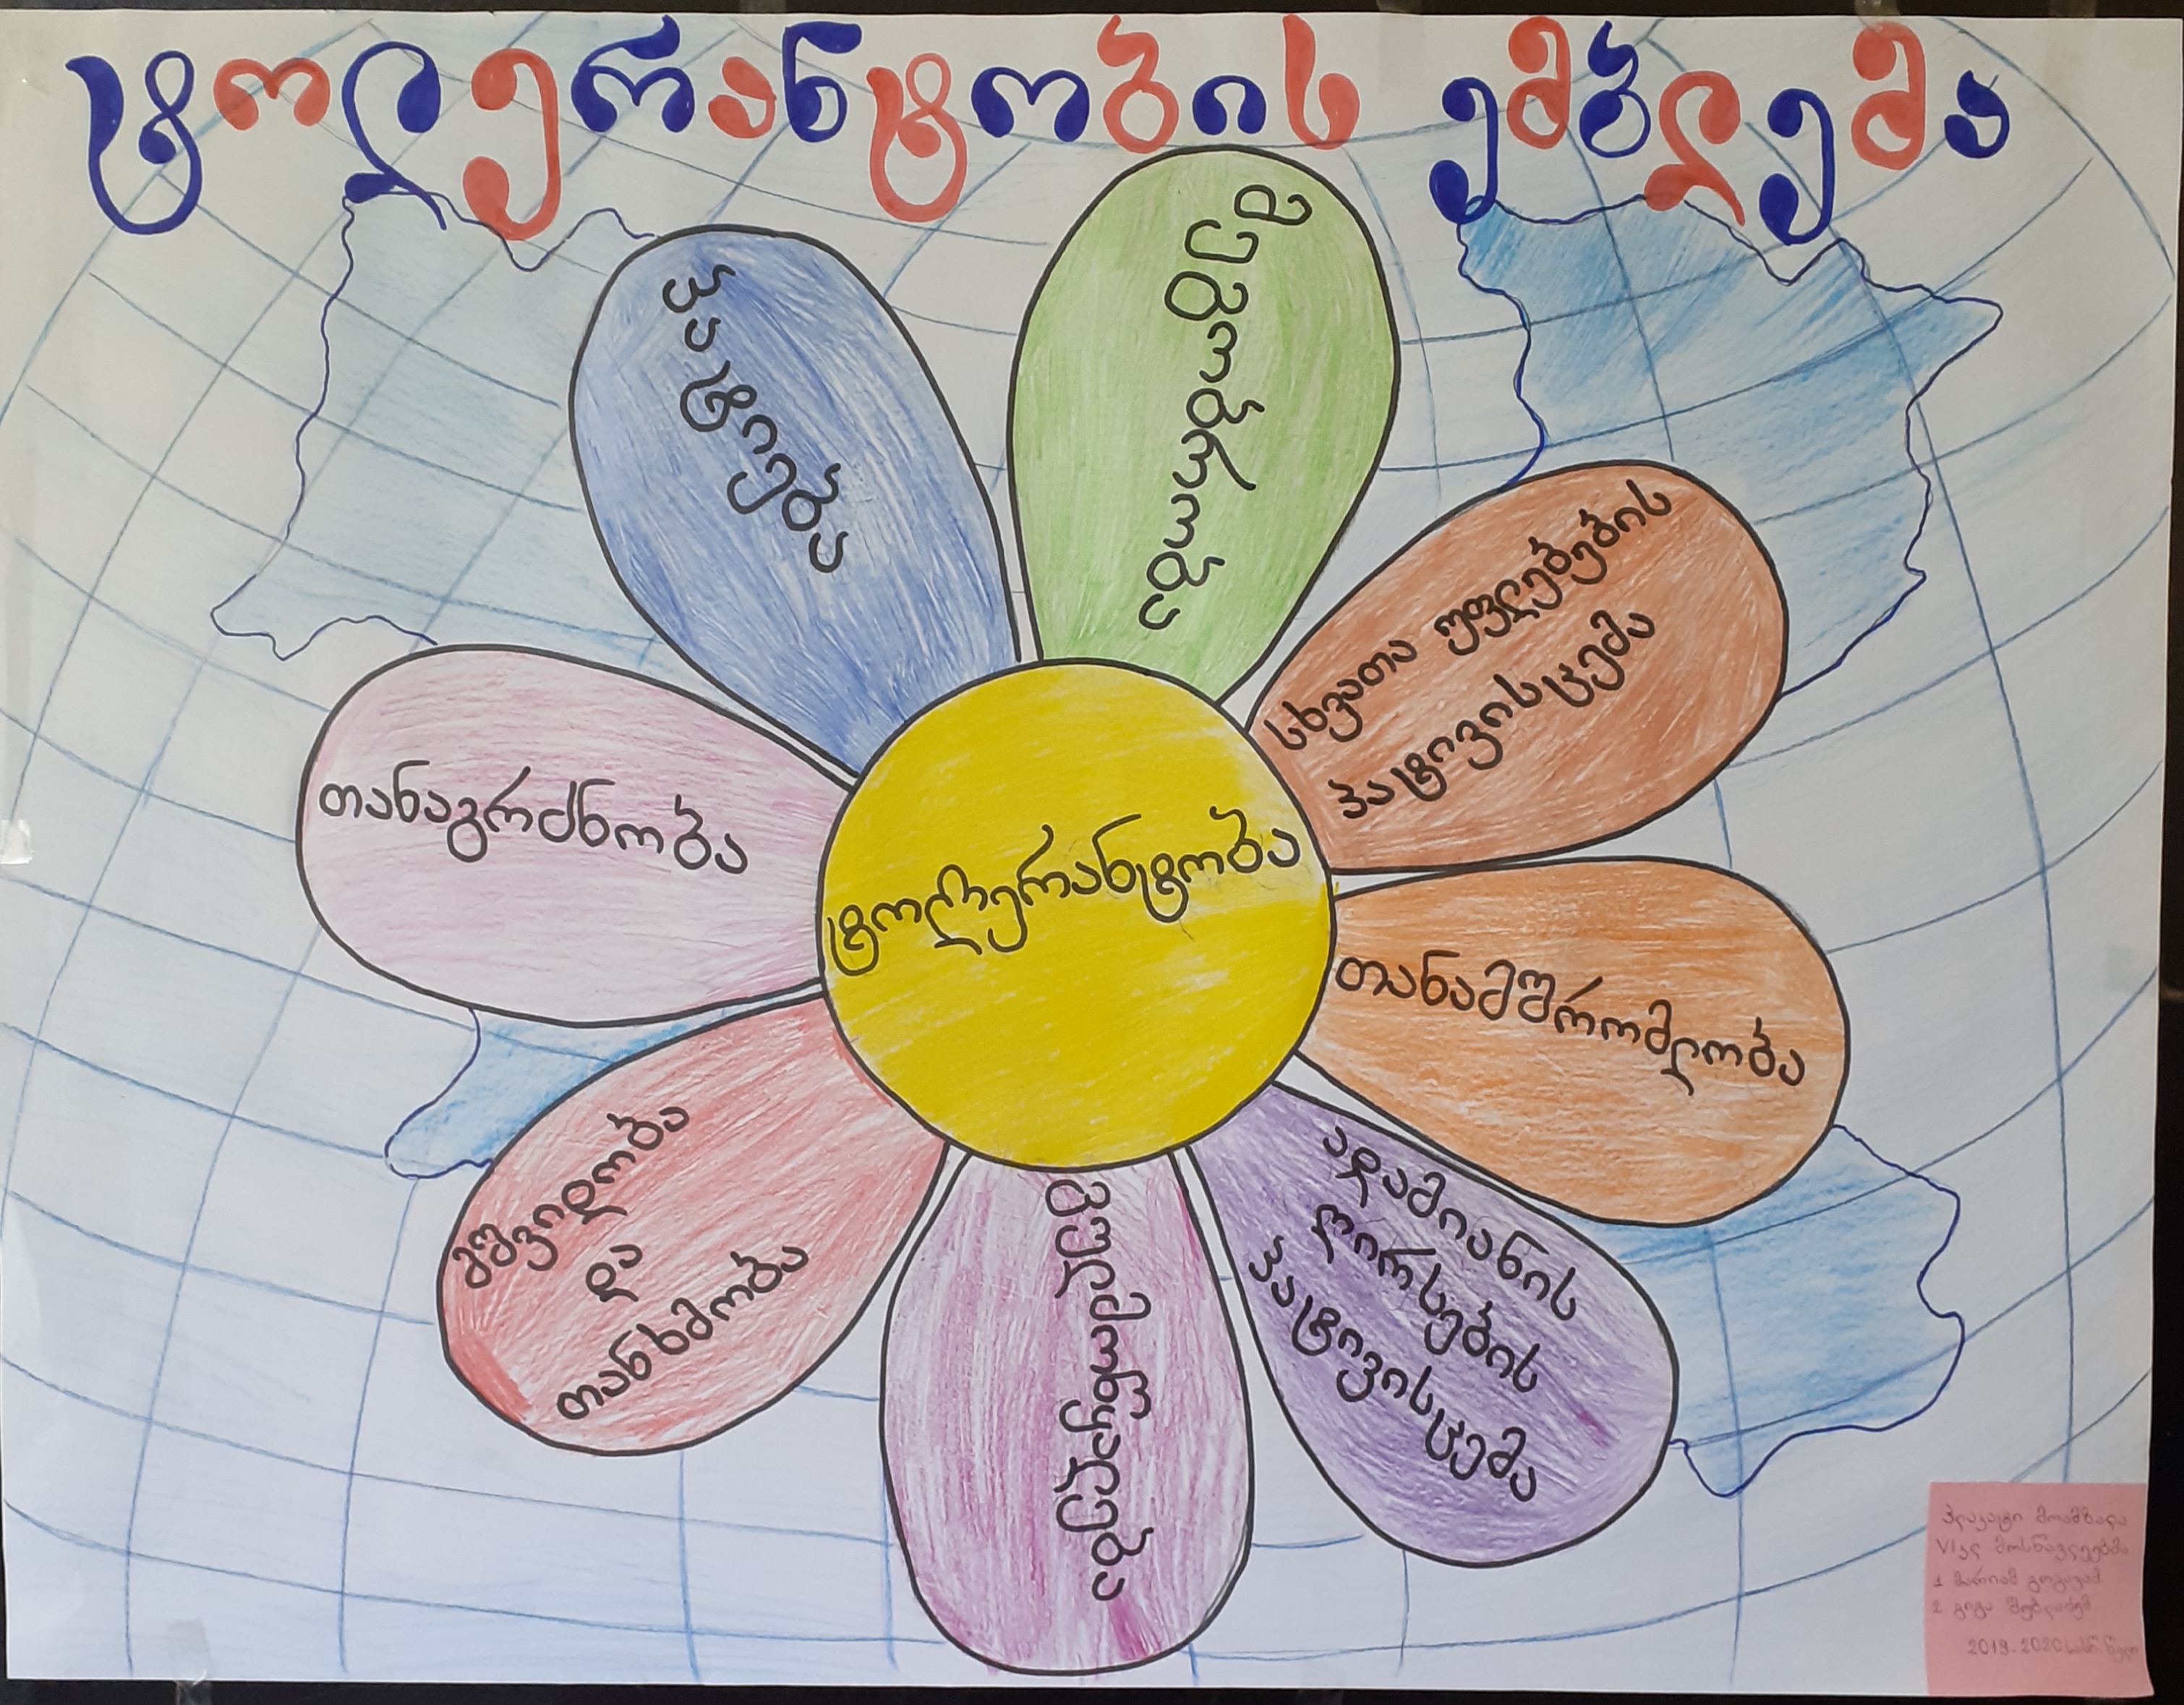 ტოლერანტობის ემბლემა
პატიება
მეგობრობა
სხვათა უფლებების
პატივისცემა
თანაგრძნობა
ტოლერანტობა
თანამშრომლობა
მშვიდობა
და
თანხმობა
გულქვაობა
ადამიანის
ღირსების
პატივისცემა
პლაკატი მოამზადა
VI კლ მოსწავლეებმა
1 მარიამ
2 გოგა
2019-2020 სასწ წელი